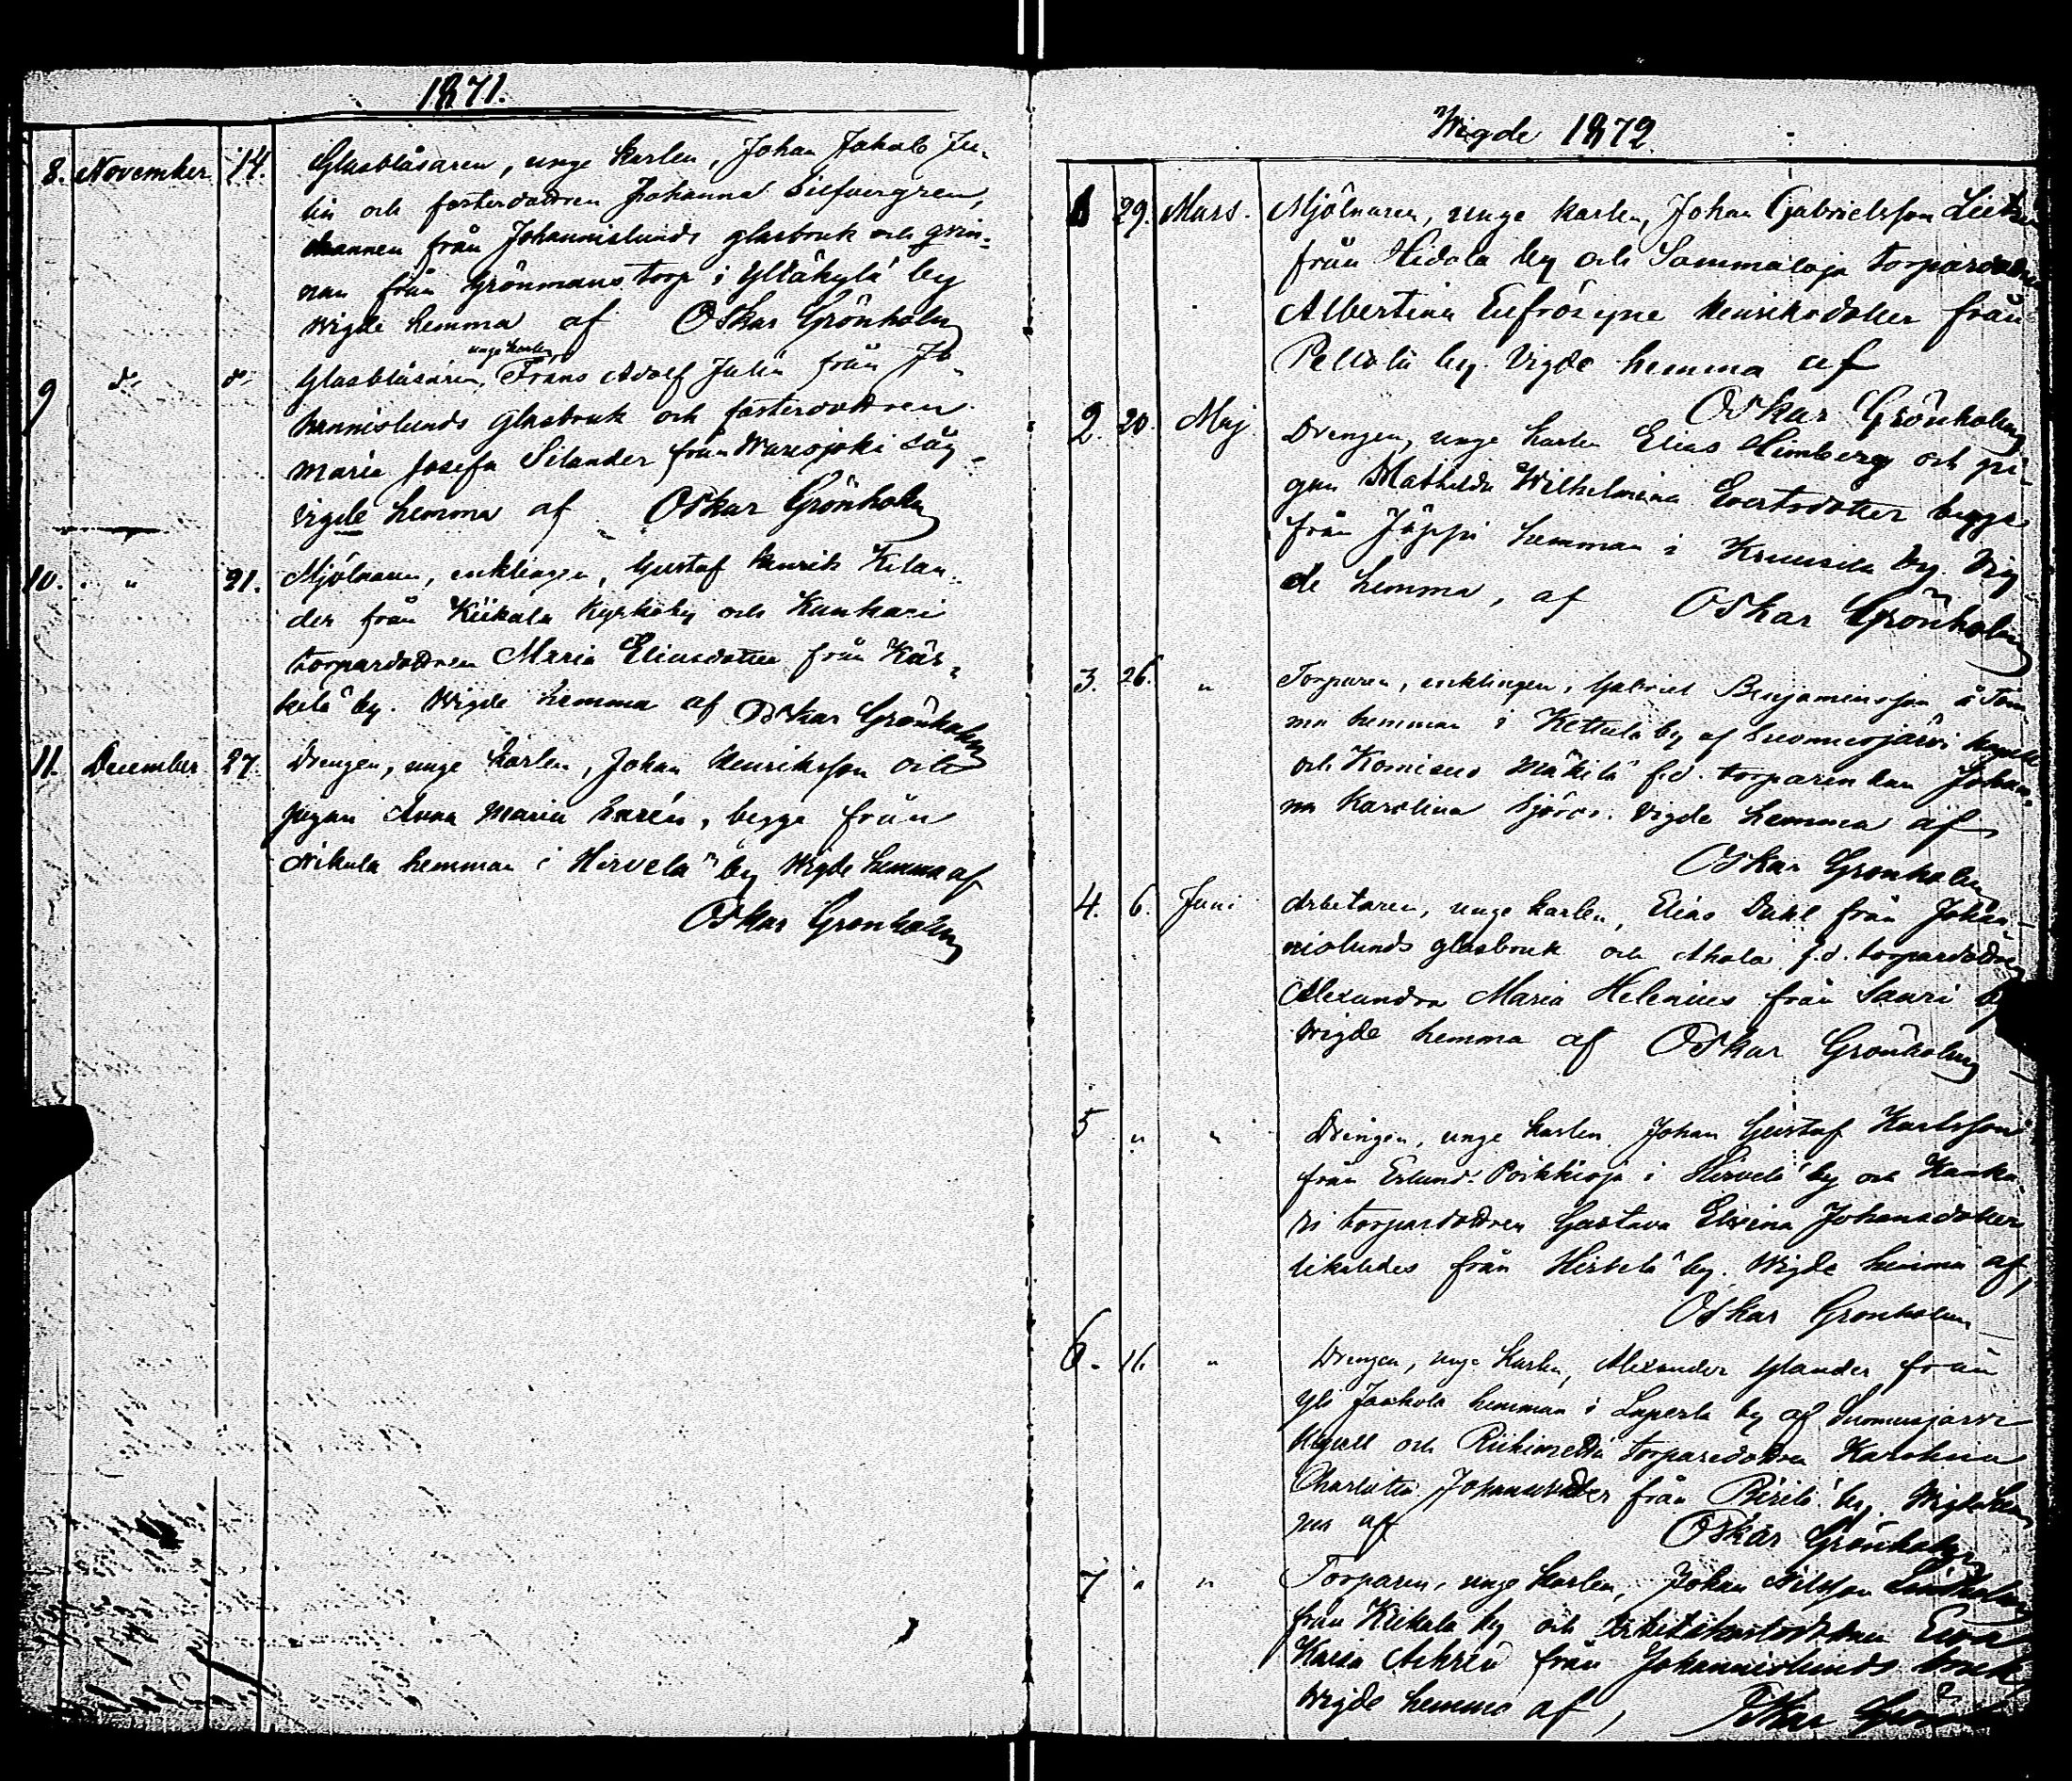 1871.
8. November 14. Glasblåsaren, unge karlen, Johan Jakob Ju-
lin och fosterdottren Johanna Silfvergren,
mannen från Johannislunds glasbruk och qvin-
nan från Grönmans torp i Yltäkylä by
Wigde hemma af Oskar Grönholm
unge karlen
9 do do Glasblåsaren, Frans Adolf Julin från Jo-
hannislunds glasbruk och fosterdottren
Maria Josefa Silander från Waresjoki såg.
Vigde hemma af Oskar Grönholm
10. " 21. Mjölnaren, enklingen, Gustaf Henrik Kilan-
der från Kiikala Kyrkoby och Kankari
torparedottren Maria Eliasdotter från Käs-
kelä by. Wigde hemma af Oskar Grönholm
11. December 27. Drengen, unge karlen, Johan Henriksson och
pigan Anna Maria Larén, begge från
Nikula hemman i Hirvelä by Wigde hemma af
Oskar Grönholm
Wigde 1872.
1 29. Mars. Mjölnaren, unge karlen, Johan Gabrielsson
från Hidola by och Sammaloja torparedottren
Albertina Eufrosyne Henriksdotter från
Peltola by. Vigde hemma af
Oskar Grönholm
2. 20. Maj Drengen, unge karlen Elias Himberg och pi-
gan Mathilda Wilhelmina Evertsdotter begge
från Jäppi hemman i Kruusila by. Vig-
de hemma, af Oskar Grönholm
3. 26. " Torparen, enklingen, Gabriel Benjaminsson å
ma hemman i Kettula by af Suomusjärvi kapell
och Komisuo Mäkilä f.d. torparen Johan-
na Karolina Sjöros. Vigde hemma af
Oskar Grönholm
4. 6. Juni Arbetaren, unge karlen, Elias Dahl från Johan-
nislunds glasbruk och Ahola f.d. torparedottren
Alexandra Maria Helenius från Sauri
Wigde hemma af Oskar Grönholm
5 " " Drengen, unge karlen Johan Gustaf Karlsson
från Erlund Poikkioja i Hirvelä by och Kanka-
ri torparedottren Gustava Elvina Johansdotter
likaledes från Hirvelä by. Wigde hemma af,
Oskar Grönholm
6. 11. " Drengen, unge karlen, Alexander Ylander från
Yli Jaakola hemman i Laperla by af Suomusjärvi
kapell och torparedottren Karolina
Charlotta Johansdotter från by Wigde hem-
ma af Oskar Grönholm
7 " " Torparen, unge karlen, Johan Nilsson Lindholm
från Kiikala by och Eva
Kaisa från Johannislunds bruk,
Wigde hemma af, Oskar